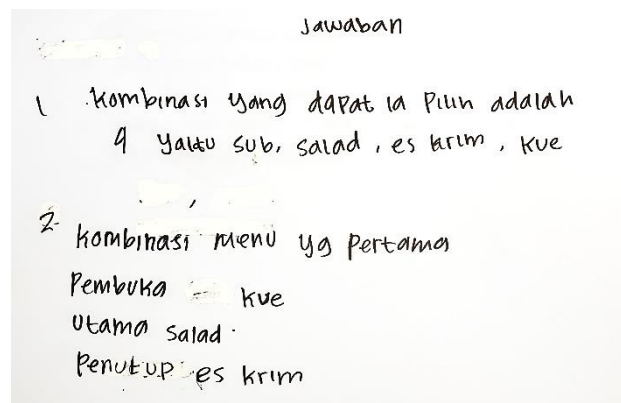 Jawaban
1 Kombinasi yang dapat ia Pilih adalah
4 yaitu sub, salad, es krim, kue
2. Kombinasi menu yg pertama
Pembuka = kue
Utama salad.
Penutup es krim